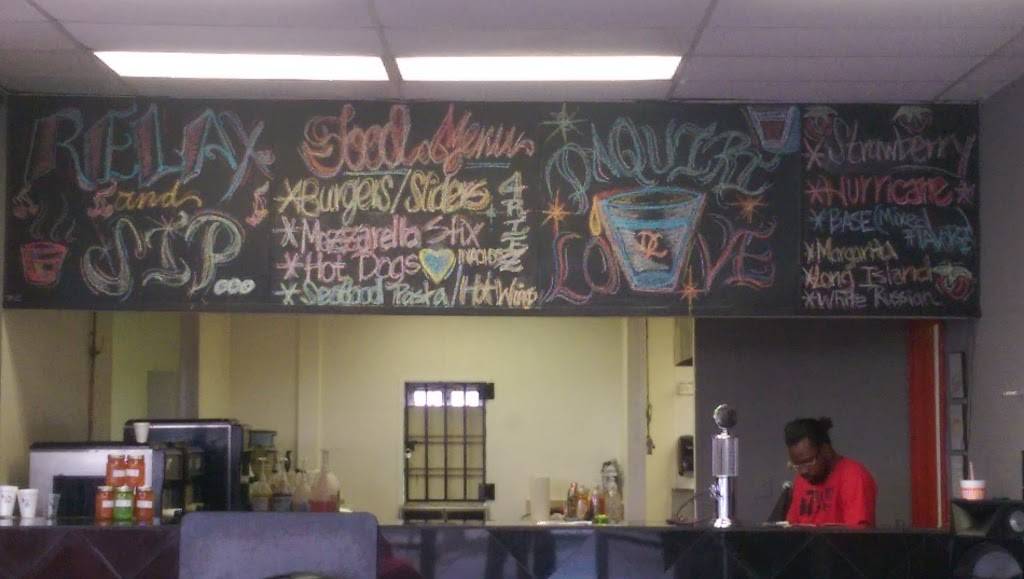 RELAX
and
SIP...
Food Menu
*Burgers/Sliders
*Mozzarella Stix
*Hot Dogs
*Seafood Pasta/Hot Wings
NACHOS
DAQUIRI
LOVE
DL
*Strawberry
*Hurricane *
*BASE (Mixed
FLAVORZ)
*Margarita
*Long Island
*White Russian